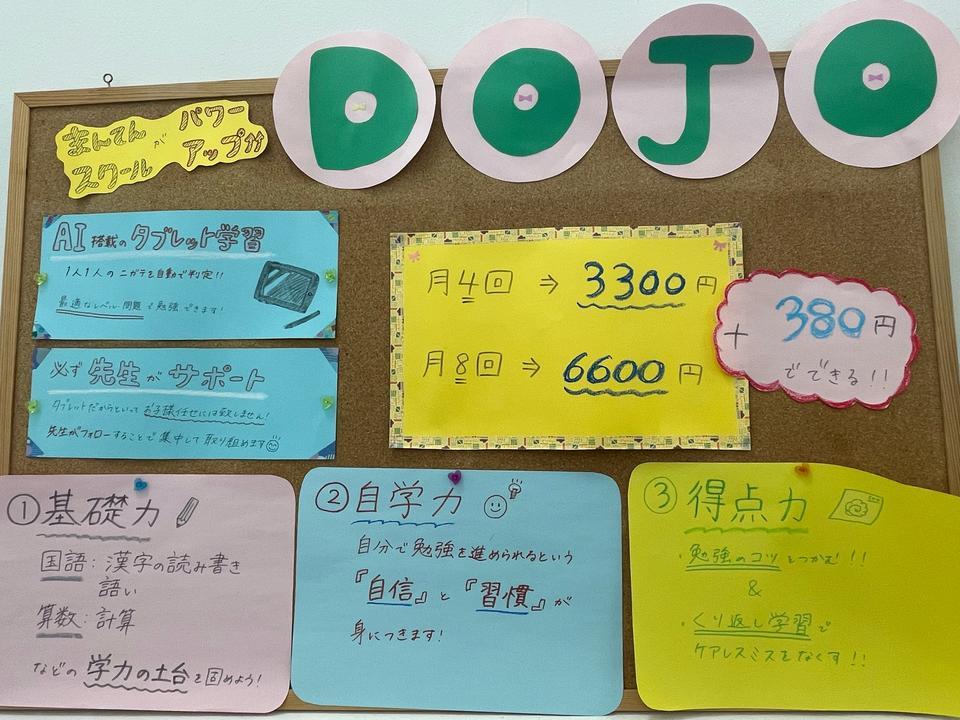 DOJO
まんてん
スクール
が
パワー
アップ!!
AI搭載のタブレット学習
1人1人のニガテを自動で判定!!
最適なレベル・問題で勉強できます!
必ず先生がサポート
タブレットだからといってお子様任せには致しません!
先生がフォローすることで集中して取り組めます
月4回 ⇒ 3300円
月8回 ⇒ 6600円
+380円
でできる!!
①基礎力
国語:漢字の読み書き
語い
算数:計算
などの学力の土台を固めよう!
②自学力
自分で勉強を進められるという
『自信』と『習慣』が
身につきます!
③得点力
・勉強のコツをつかむ!!
&
・くり返し学習で
ケアレスミスをなくす!!